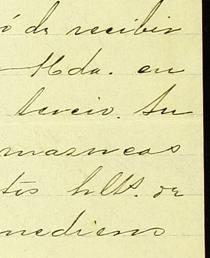 ó de recibir
Hda. en
tercio. Su
mazucas
tos hlts. de
mediens